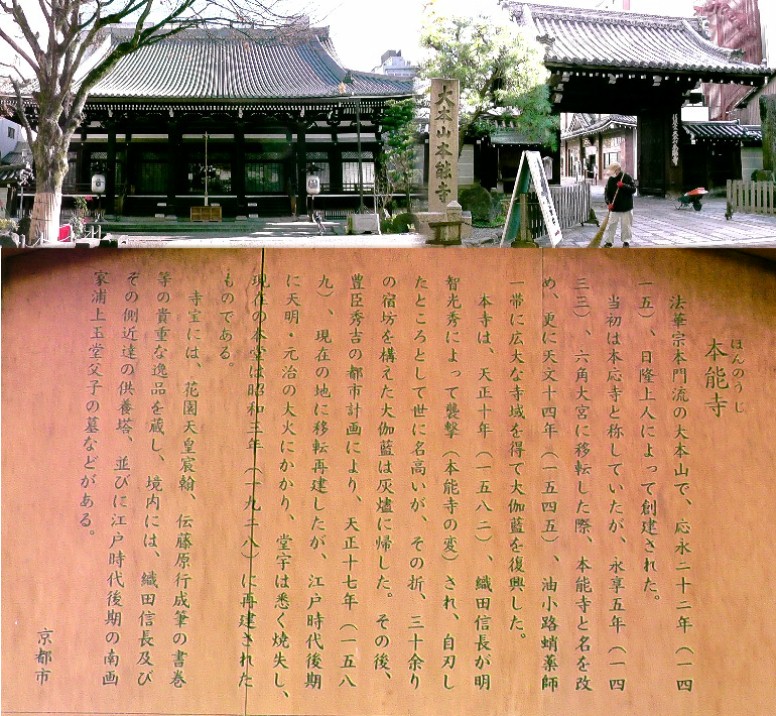 大本山本能寺
ほんのうじ
本能寺
法華宗本門流の大本山で、応永二十二年（一四
一五）、日隆上人によって創建された。
当初は本応寺と称していたが、永享五年（一四
三三）、六角大宮に移転した際、本能寺と名を改
め、更に天文十四年（一五四五）、油小路蛸薬師
一帯に広大な寺域を得て大伽藍を復興した。
本寺は、天正十年（一五八二）、織田信長が明
智光秀によって襲撃（本能寺の変）され、自刃し
たところとして世に名高いが、その折、三十余り
の宿坊を構えた大伽藍は灰燼に帰した。その後、
豊臣秀吉の都市計画により、天正十七年（一五八
九）、現在の地に移転再建したが、江戸時代後期
に天明・元治の大火にかかり、堂宇は悉く焼失し、
現在の本堂は昭和三年（一九二八）に再建された
ものである。
寺宝には、花園天皇宸翰、伝藤原行成筆の書巻
等の貴重な逸品を蔵し、境内には、織田信長及び
その側近達の供養塔、並びに江戸時代後期の南画
家浦上玉堂父子の墓などがある。
京都市